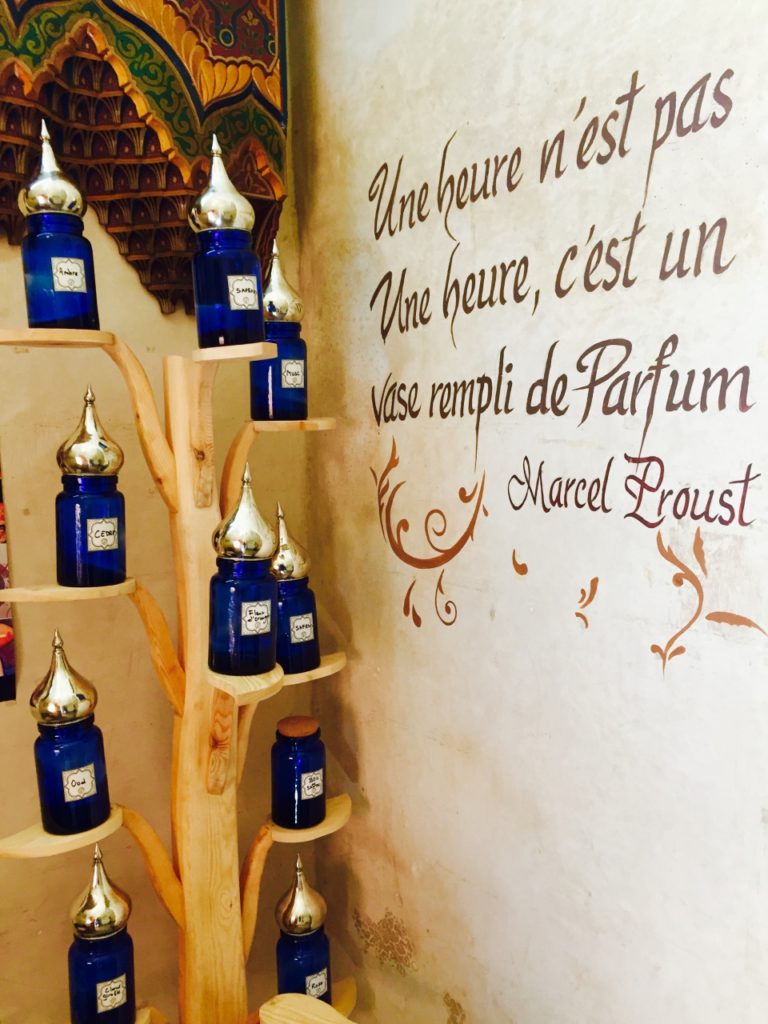 Une heure n'est pas
Une heure, c'est un
vase rempli de Parfum
Marcel Proust
Ambre
SAFRAN
Musc
CEDRE
Fleur
d'orange
SAFRAN
Oud
BOIS
Rose